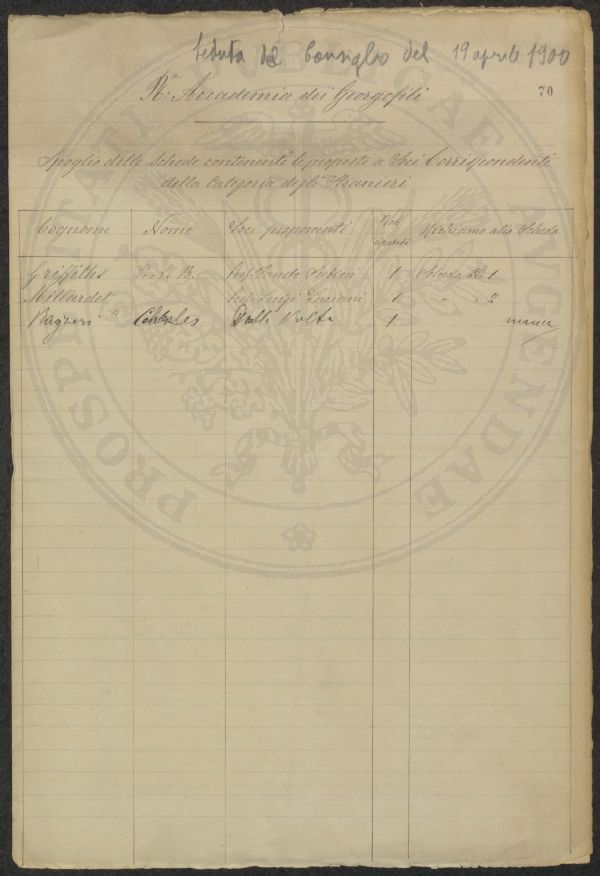 Seduta del Consiglio del 19 aprile 1900
Rª Accademia dei Georgofili
70
Spoglio delle schede contenenti le proposte a Soci Corrispondenti
della Categoria degli Stranieri
Cognome Nome Soci proponenti Voti riportati Richiamo alla Scheda
Griffiths B. Prof. 1 Scheda Nº 1
Millardet Prof. Luigi 1 " " 2
Charles Dalla Volta 1 manca
PROSPERITATI PUBLICAE AUGENDAE